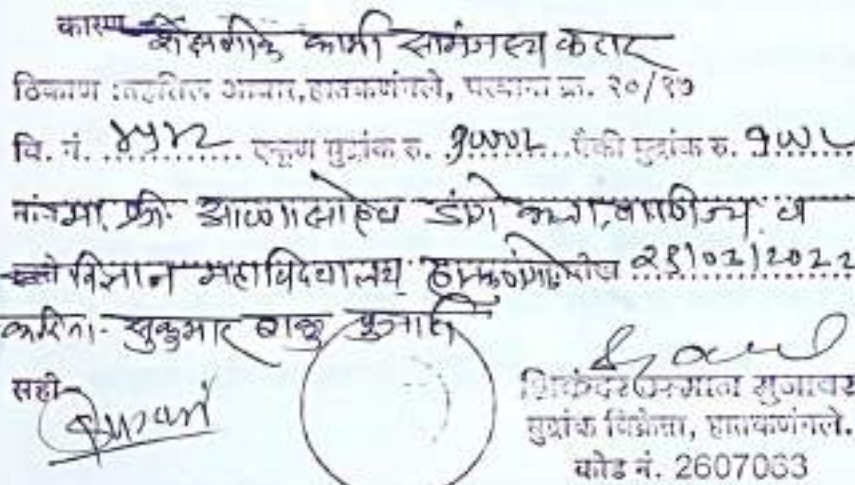 कारण शैक्षणीक कामी सामंजस्य करार
ठिकाण :तहसिल आवार,हातकणंगले, परवाना क्र. २०/९७
वि. नं. ४५१२ एकूण मुद्रांक रु. पैकी मुद्रांक रु.
श्री. आण्णासाहेब डांगे कला, वाणिज्य व
विज्ञान महाविदयालय हातकणंगले
करिता- सुकुमार बाबु पुजारी
सही
शिकंदर उस्मान मुजावर
मुद्रांक विक्रेता, हातकणंगले.
कोड नं. 2607063